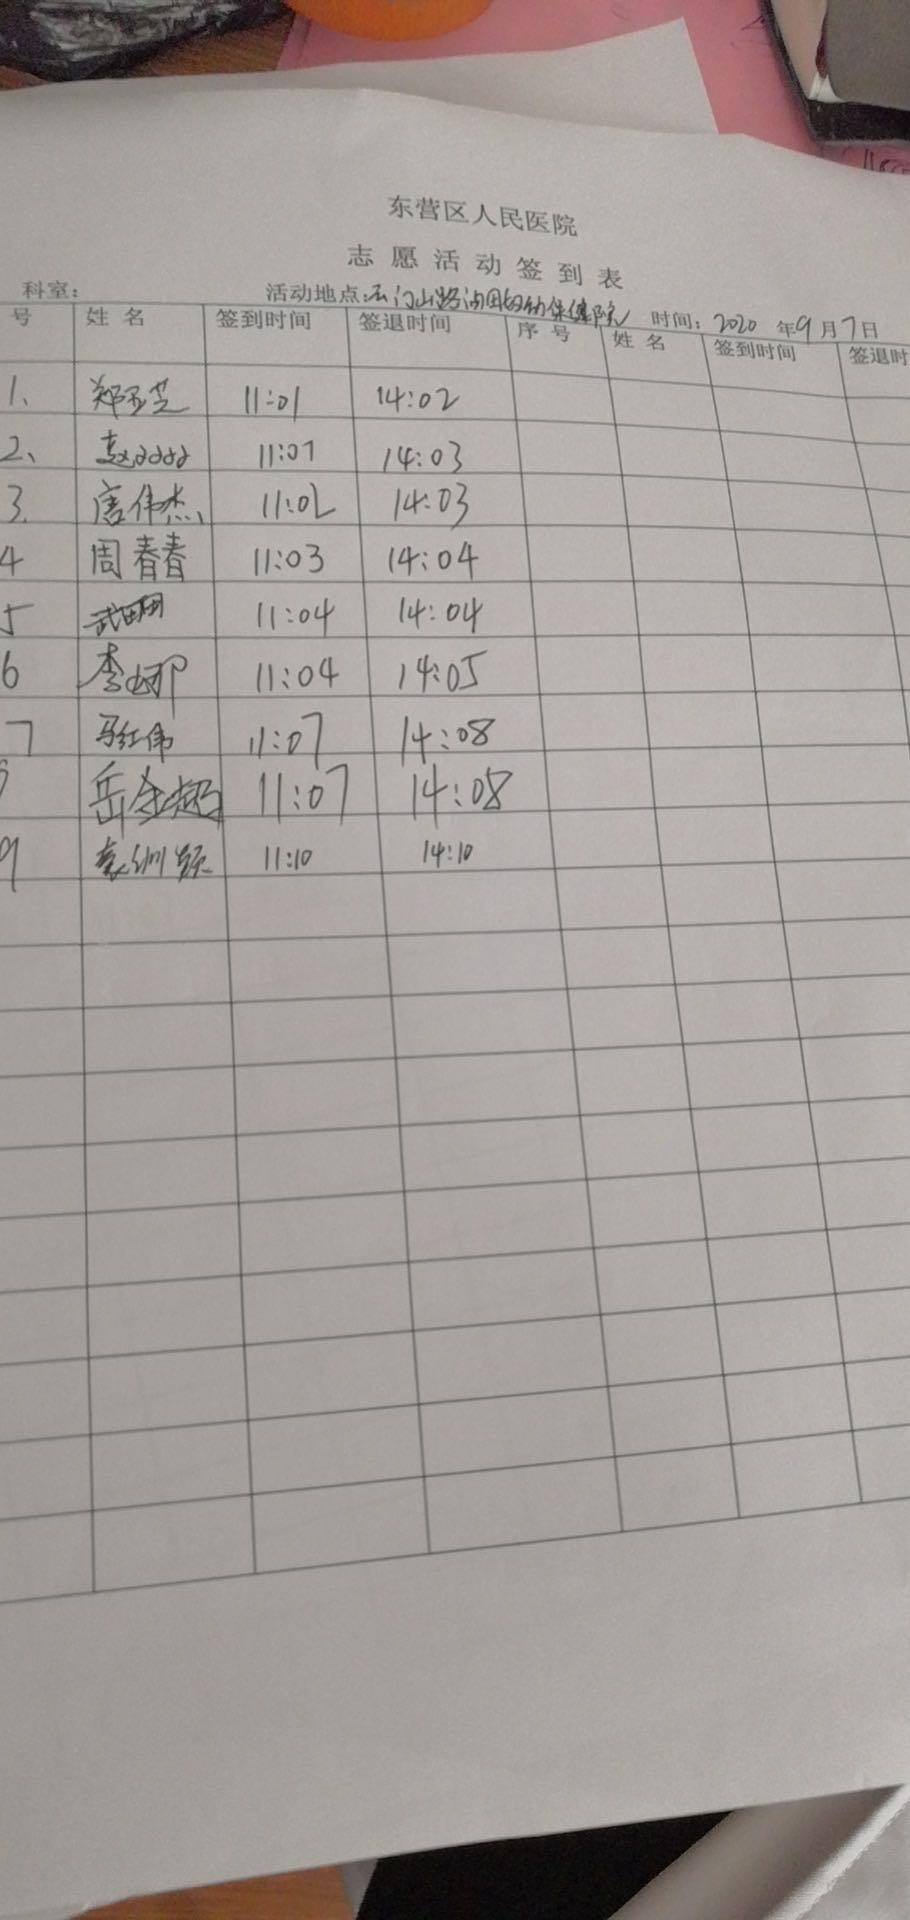 东营区人民医院
志愿活动签到表
科室： 活动地点：云门山路油田妇幼保健院 时间：2020年9月7日
号 姓名 签到时间 签退时间 序号 姓名 签到时间 签退时
1、 郑玉芝 11:01 14:02
2、 赵 11:01 14:03
3、 唐伟杰 11:02 14:03
4 周春春 11:03 14:04
5 武 11:04 14:04
6 李娜 11:04 14:05
7 马红伟 11:07 14:08
岳金超 11:07 14:08
9 袁 11:10 14:10